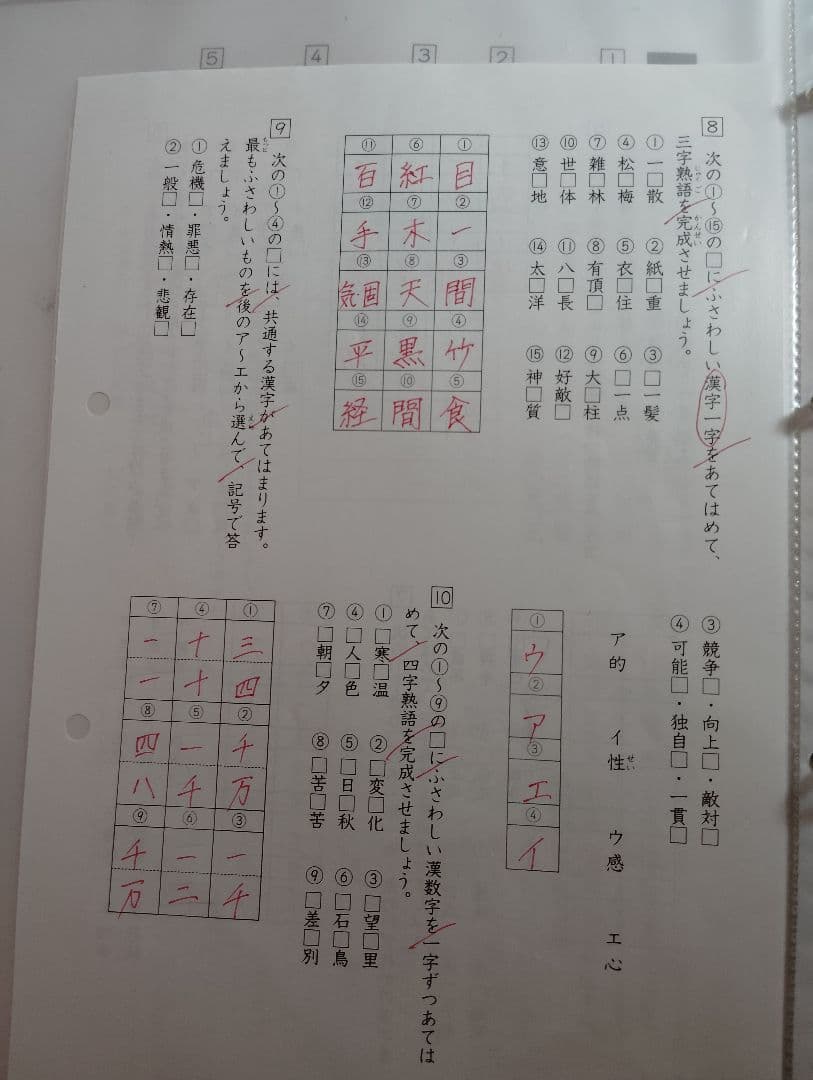 5 4 3 2 1
8 次の①〜⑮の□にふさわしい漢字一字をあてはめて、
三字熟語を完成させましょう。
じゅくご かんせい
① 一□散 ② 紙□重 ③ □一髪
④ 松□梅 ⑤ 衣□住 ⑥ □一点
⑦ 雑□林 ⑧ 有頂□ ⑨ 大□柱
⑩ 世□体 ⑪ 八□長 ⑫ 好敵□
⑬ 意□地 ⑭ 太□洋 ⑮ 神□質
① 目
② 一
③ 間
④ 竹
⑤ 食
⑥ 紅
⑦ 木
⑧ 天
⑨ 黒
⑩ 間
⑪ 百
⑫ 手
⑬ 気・固
⑭ 平
⑮ 経
9 次の①〜④の□には、共通する漢字があてはまります。
最もふさわしいものを後のア〜エから選んで、記号で答
もっと えら
えましょう。
① 危機□・罪悪□・存在□
② 一般□・情熱□・悲観□
③ 競争□・向上□・敵対□
④ 可能□・独自□・一貫□
ア 的 イ 性 ウ 感 エ 心
せい
① ウ
② ア
③ エ
④ イ
10 次の①〜⑨の□にふさわしい漢数字を一字ずつあては
めて、四字熟語を完成させましょう。
① □寒□温 ② □変□化 ③ □望□里
④ □人□色 ⑤ □日□秋 ⑥ □石□鳥
⑦ □朝□夕 ⑧ □苦□苦 ⑨ □差□別
① 三 四
② 千 万
③ 一 千
④ 十 十
⑤ 一 千
⑥ 一 二
⑦ 一 一
⑧ 四 八
⑨ 千 万